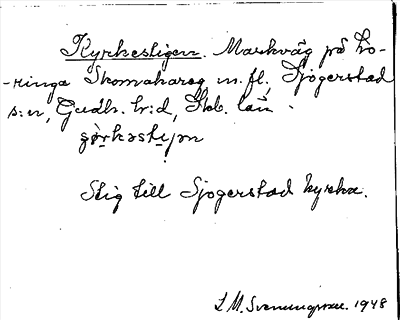 Kyrkestigen. Markväg på Lo-
-ringa Skomakareg m.fl., Sjogerstad
s:n, Gudh. h:d, Skb. län.
Stig till Sjogerstad kyrka.
L. M. Svenungsson. 1948